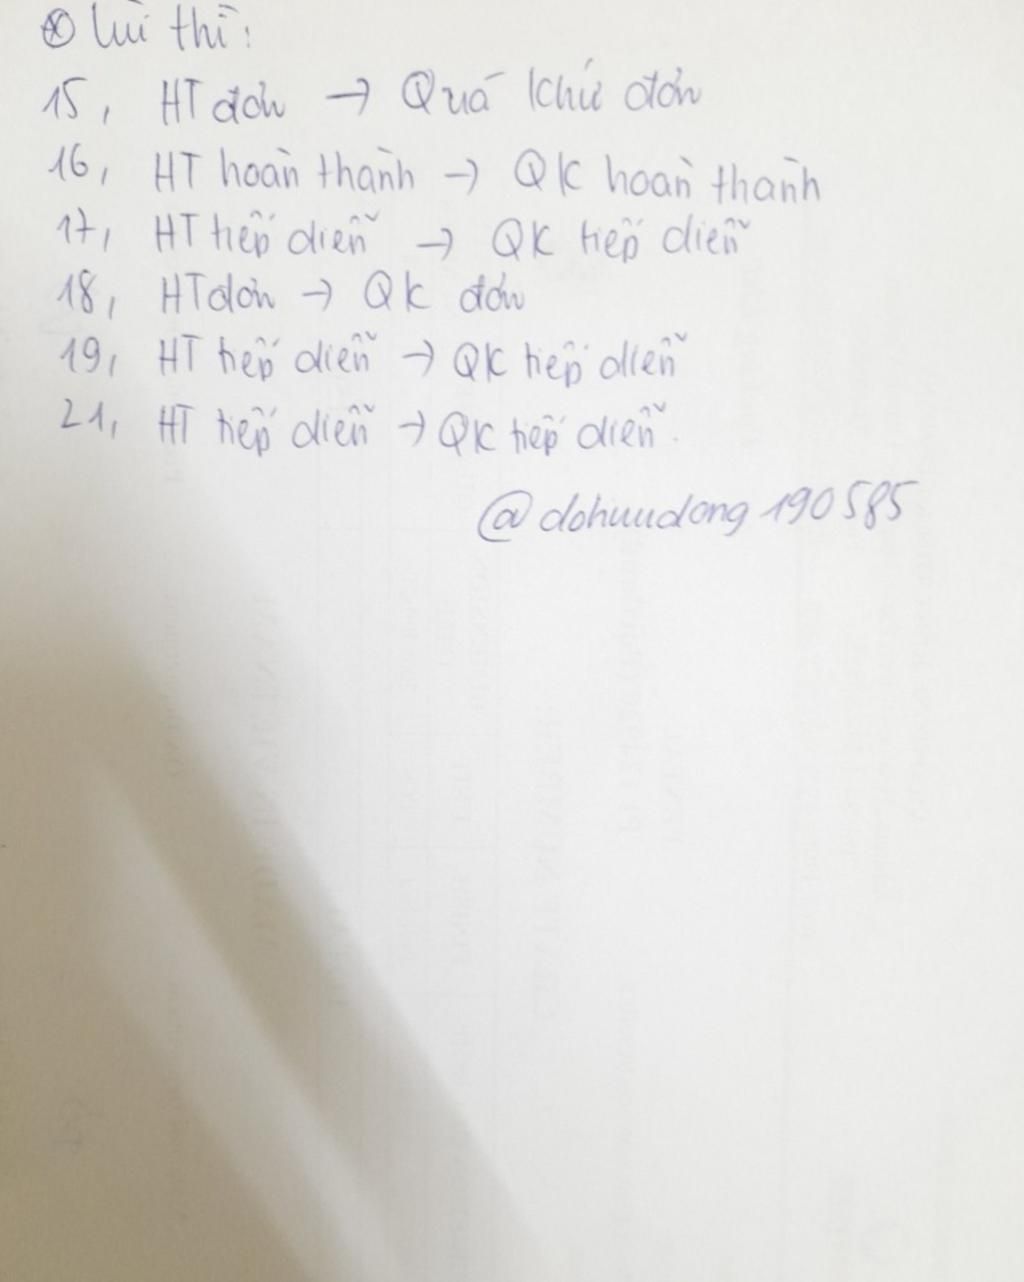 ⊗ Lùi thì:
15, HT đơn → Quá khứ đơn
16, HT hoàn thành → QK hoàn thành
17, HT tiếp diễn → QK tiếp diễn
18, HT đơn → QK đơn
19, HT tiếp diễn → QK tiếp diễn
21, HT tiếp diễn → QK tiếp diễn.
@dohuudong190585